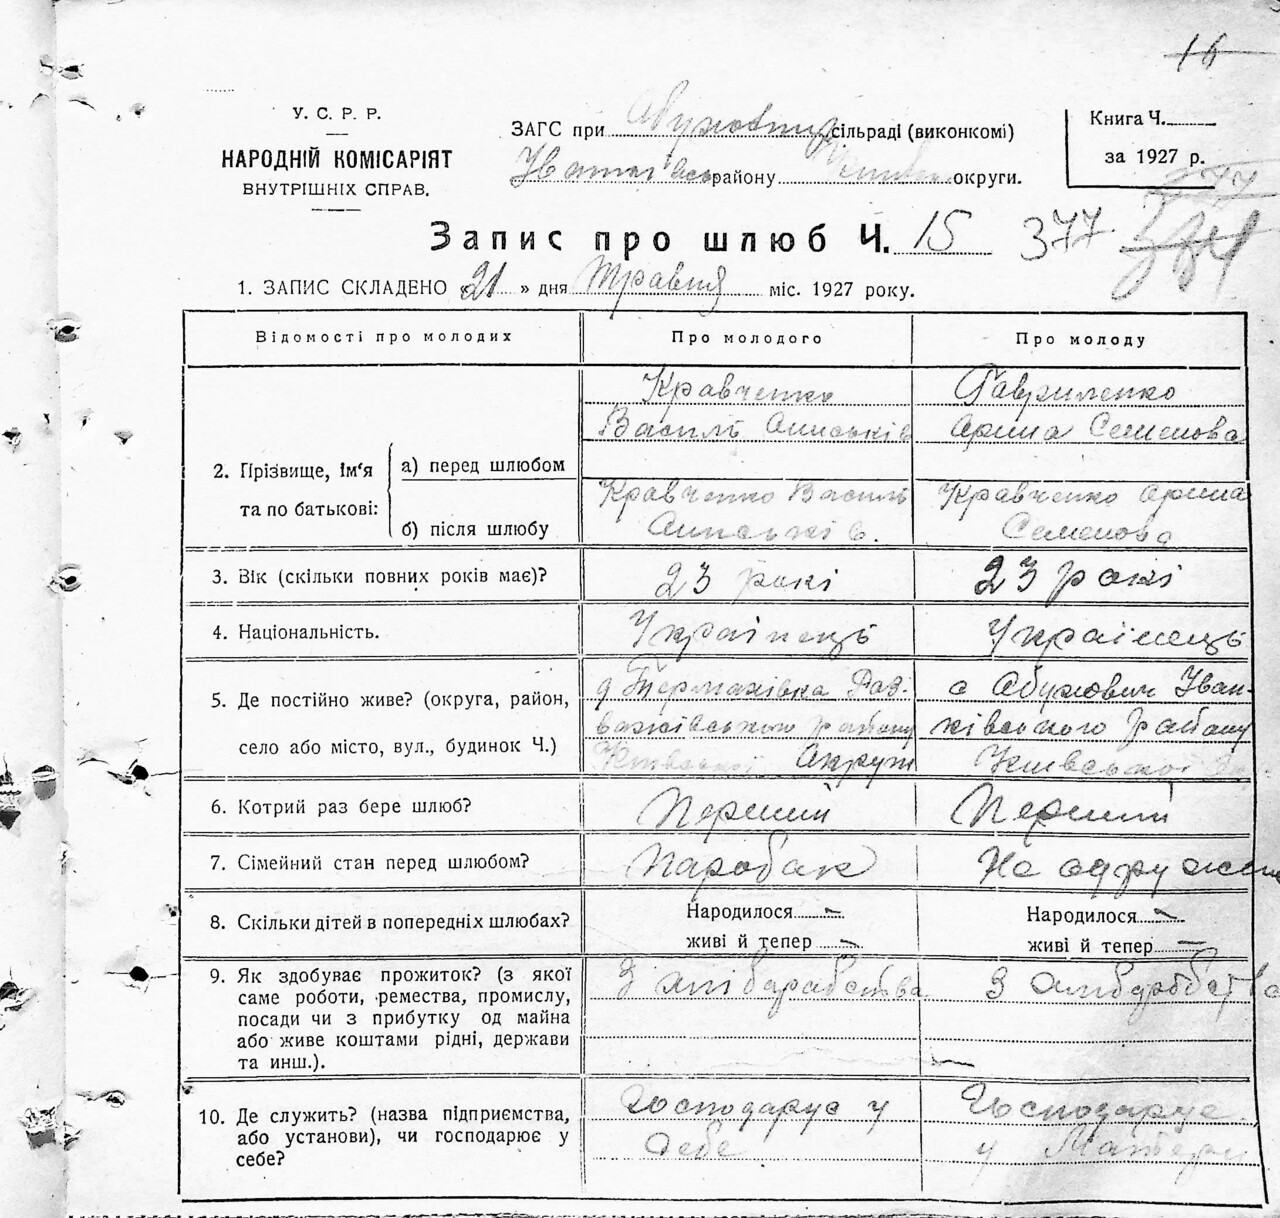 16
У. С. Р. Р.
НАРОДНІЙ КОМІСАРІЯТ
ВНУТРІШНІХ СПРАВ.
ЗАГС при сільраді (виконкомі)
району округи.
Книга Ч.
за 1927 р.
Запис про шлюб Ч. 15 377
1. ЗАПИС СКЛАДЕНО « 21 » дня Травня міс. 1927 року.
Відомості про молодих Про молодого Про молоду
2. Прізвище, ім'я та по батькові:
а) перед шлюбом
Кравченко
Василь
Гавриленко
Арина Семенова
б) після шлюбу
Кравченко Василь
Кравченко Арина
Семенова
3. Вік (скільки повних років має)? 23 рокі 23 рокі
4. Національність. Українець Українець
5. Де постійно живе? (округа, район,
село або місто, вул., будинок Ч.)
Термахівка Роз-
важівського району
Київської Округи
с Абухович Іван-
ківського району
Київської
6. Котрий раз бере шлюб? Перший Перший
7. Сімейний стан перед шлюбом? Паробак Не одружена
8. Скільки дітей в попередніх шлюбах? Народилося - Народилося -
живі й тепер - живі й тепер -
9. Як здобуває прожиток? (з якої
саме роботи, ремества, промислу,
посади чи з прибутку од майна
або живе коштами рідні, держави
та инш.).
З хліборобства
З
10. Де служить? (назва підприємства,
або установи), чи господарює у
себе?
Господарує у
себе
Господарує
у Матери